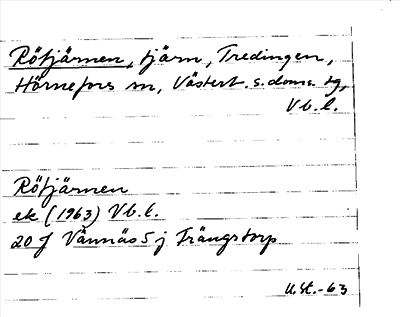 Rötjärnen, tjärn, Tredingen,
Hörnefors sn, Västerb. s. doms. tg,
Vb. l.
Rötjärnen
ek (1963) Vb. l.
20 J Vännäs 5 j Trångstorp
U.St.-63